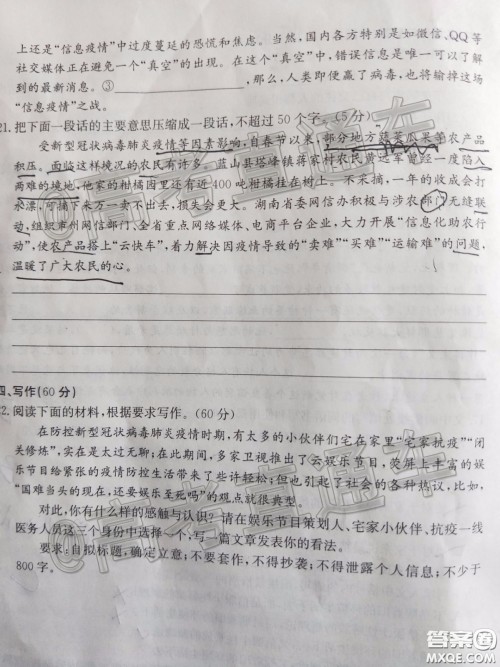 上还是“信息疫情”中过度蔓延的恐慌和焦虑。当然，国内各方特别是如微信、QQ等
社交媒体正在避免一个“真空”的出现。在这个“真空”中，错误信息是唯一可以了解
到的最新消息。③____________，那么，人类即便赢了病毒，也将输掉这场
“信息疫情”之战。
21. 把下面一段话的主要意思压缩成一段话，不超过50个字。(5分)
受新型冠状病毒肺炎疫情等因素影响，自春节以来，部分地方蔬菜瓜果等农产品
积压。面临这样境况的农民有许多。蓝山县塔峰镇蒋家村农民黄远军曾经一度陷入
两难的境地，他家的柑橘园里还有近400吨柑橘挂在树上。不采摘，一年的收成会打
水漂，可摘下来万一卖不出去，损失会更大。湖南省委网信办积极与涉农部门无缝联
动，组织市州网信部门、全省重点网络媒体、电商平台企业，大力开展“信息化助农行
动”，使农产品搭上“云快车”，着力解决因疫情导致的“卖难”“买难”“运输难”的问题，
温暖了广大农民的心。
四、写作(60分)
22. 阅读下面的材料，根据要求写作。(60分)
在防控新型冠状病毒肺炎疫情时期，有太多的小伙伴们宅在家里“宅家抗疫”“闭
关修炼”，实在是太过无聊；在此期间，多家卫视推出了云娱乐节目，荧屏上丰富的娱
乐节目给紧张的疫情防控生活带来了些许轻松；但也引起了社会的各种热议，比如，
“国难当头的现在，还要娱乐至死吗”的观点就很典型。
对此，你有什么样的感触与认识？请在娱乐节目策划人、宅家小伙伴、抗疫一线
医务人员这三个身份中选择一个，写一篇文章发表你的看法。
要求：自拟标题，确定立意；不要套作，不得抄袭；不得泄露个人信息；不少于
800字。
高考直通车
高考直通车
答案圈
MXQE.COM